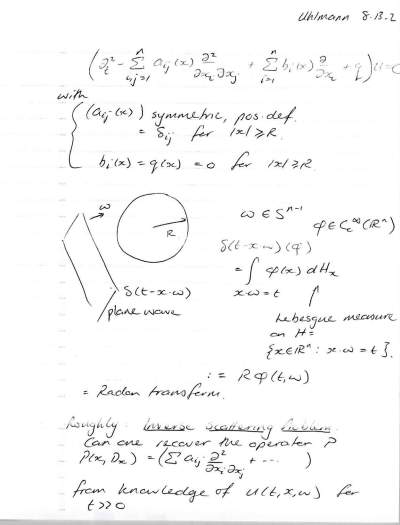 Uhlmann 8.13.2
(∂_t^2 - Σ_{i,j=1}^n a_ij(x) ∂^2/∂x_i ∂x_j + Σ_{i=1}^n b_i(x) ∂/∂x_i + q) u = 0
with
{ (a_ij(x)) symmetric, pos. def.
= δ_ij for |x| ≥ R.
b_i(x) = q(x) = 0 for |x| ≥ R.
ω
R
ω ∈ S^{n-1}
φ ∈ C_c^∞(ℝ^n)
δ(t-x·ω)(φ)
= ∫_{x·ω=t} φ(x) dH_x
δ(t-x·ω)
plane wave
Lebesgue measure
on H =
{x ∈ ℝ^n : x·ω = t}.
:= Rφ(t,ω)
= Radon transform.
Roughly: Inverse scattering problem.
Can one recover the operator P
P(x, D_x) = (Σ a_ij ∂^2/∂x_i ∂x_j + ... )
from knowledge of u(t,x,ω) for
t >> 0